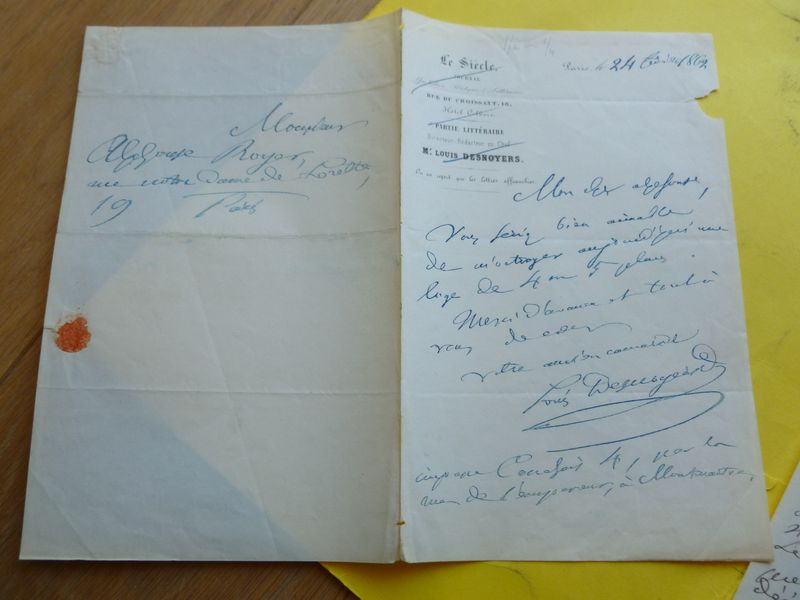 Monsieur
Alphonse Royer,
rue notre Dame de Lorette,
19 Paris
Le Siècle,
JOURNAL
RUE DU CROISSANT, 16,
Hôtel Colbert
PARTIE LITTÉRAIRE
Directeur-Rédacteur en Chef
Mr LOUIS DESNOYERS.
On ne reçoit que les lettres affranchies.
Paris, le 24 1862
Mon cher alphonse,
Vous seriez bien aimable
de m'octroyer aujourd'hui une
loge de 4 ou 5 places.
Merci d'avance et tout à
vous de cœur
votre ancien camarade
Louis Desnoyers
impasse 4, par la
rue de l'empereur, à Montmartre.